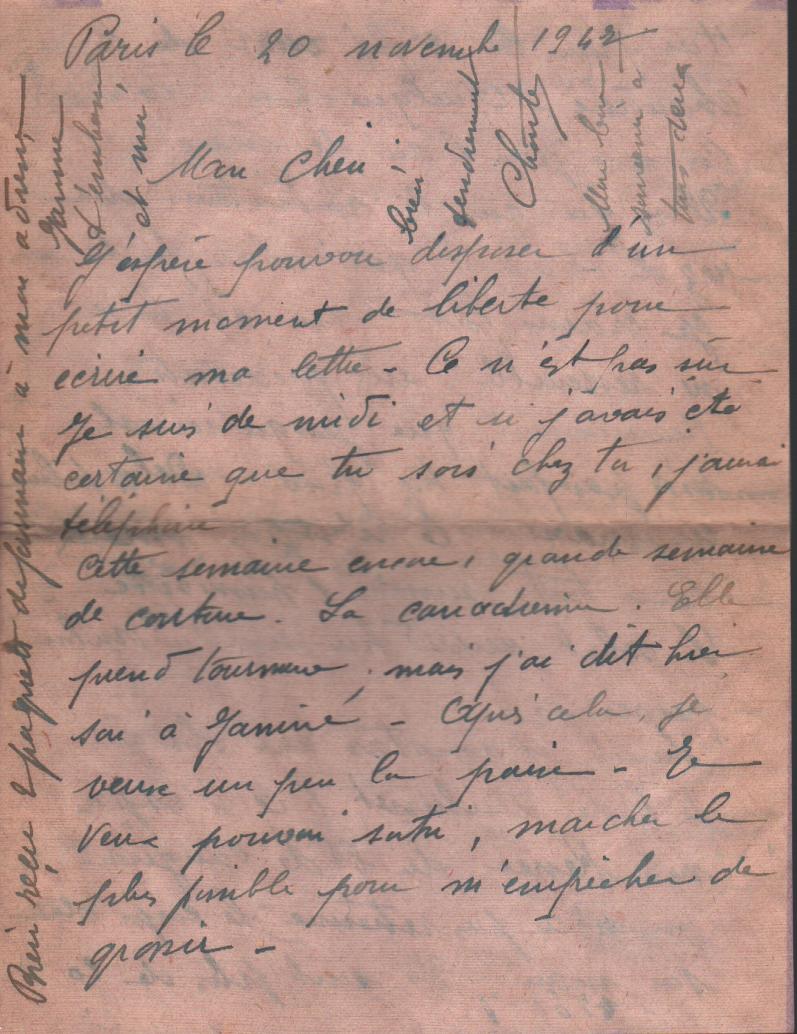 Paris le 20 novembre 1942
Mon Cheri ;
J'espère pouvoir disposer d'un
petit moment de liberte pour
ecrire ma lettre - Ce n'est pas sûr
Je suis de midi et si j'avais été
certaine que tu sois chez tu, j'aurai
téléphoné
Cette semaine encore, grande semaine
de couture. La canadienne. Elle
prend tournure, mais j'ai dit hier
soir à Janine - Après cela, je
veux un peu la paix - Je
veux pouvoir sortir, marcher le
plus possible pour m'empêcher de
grossir -
Bien reçu 2 paquets de Janine à mon adresse
Janine
t'embrasse
et moi
bien
tendrement
tous deux